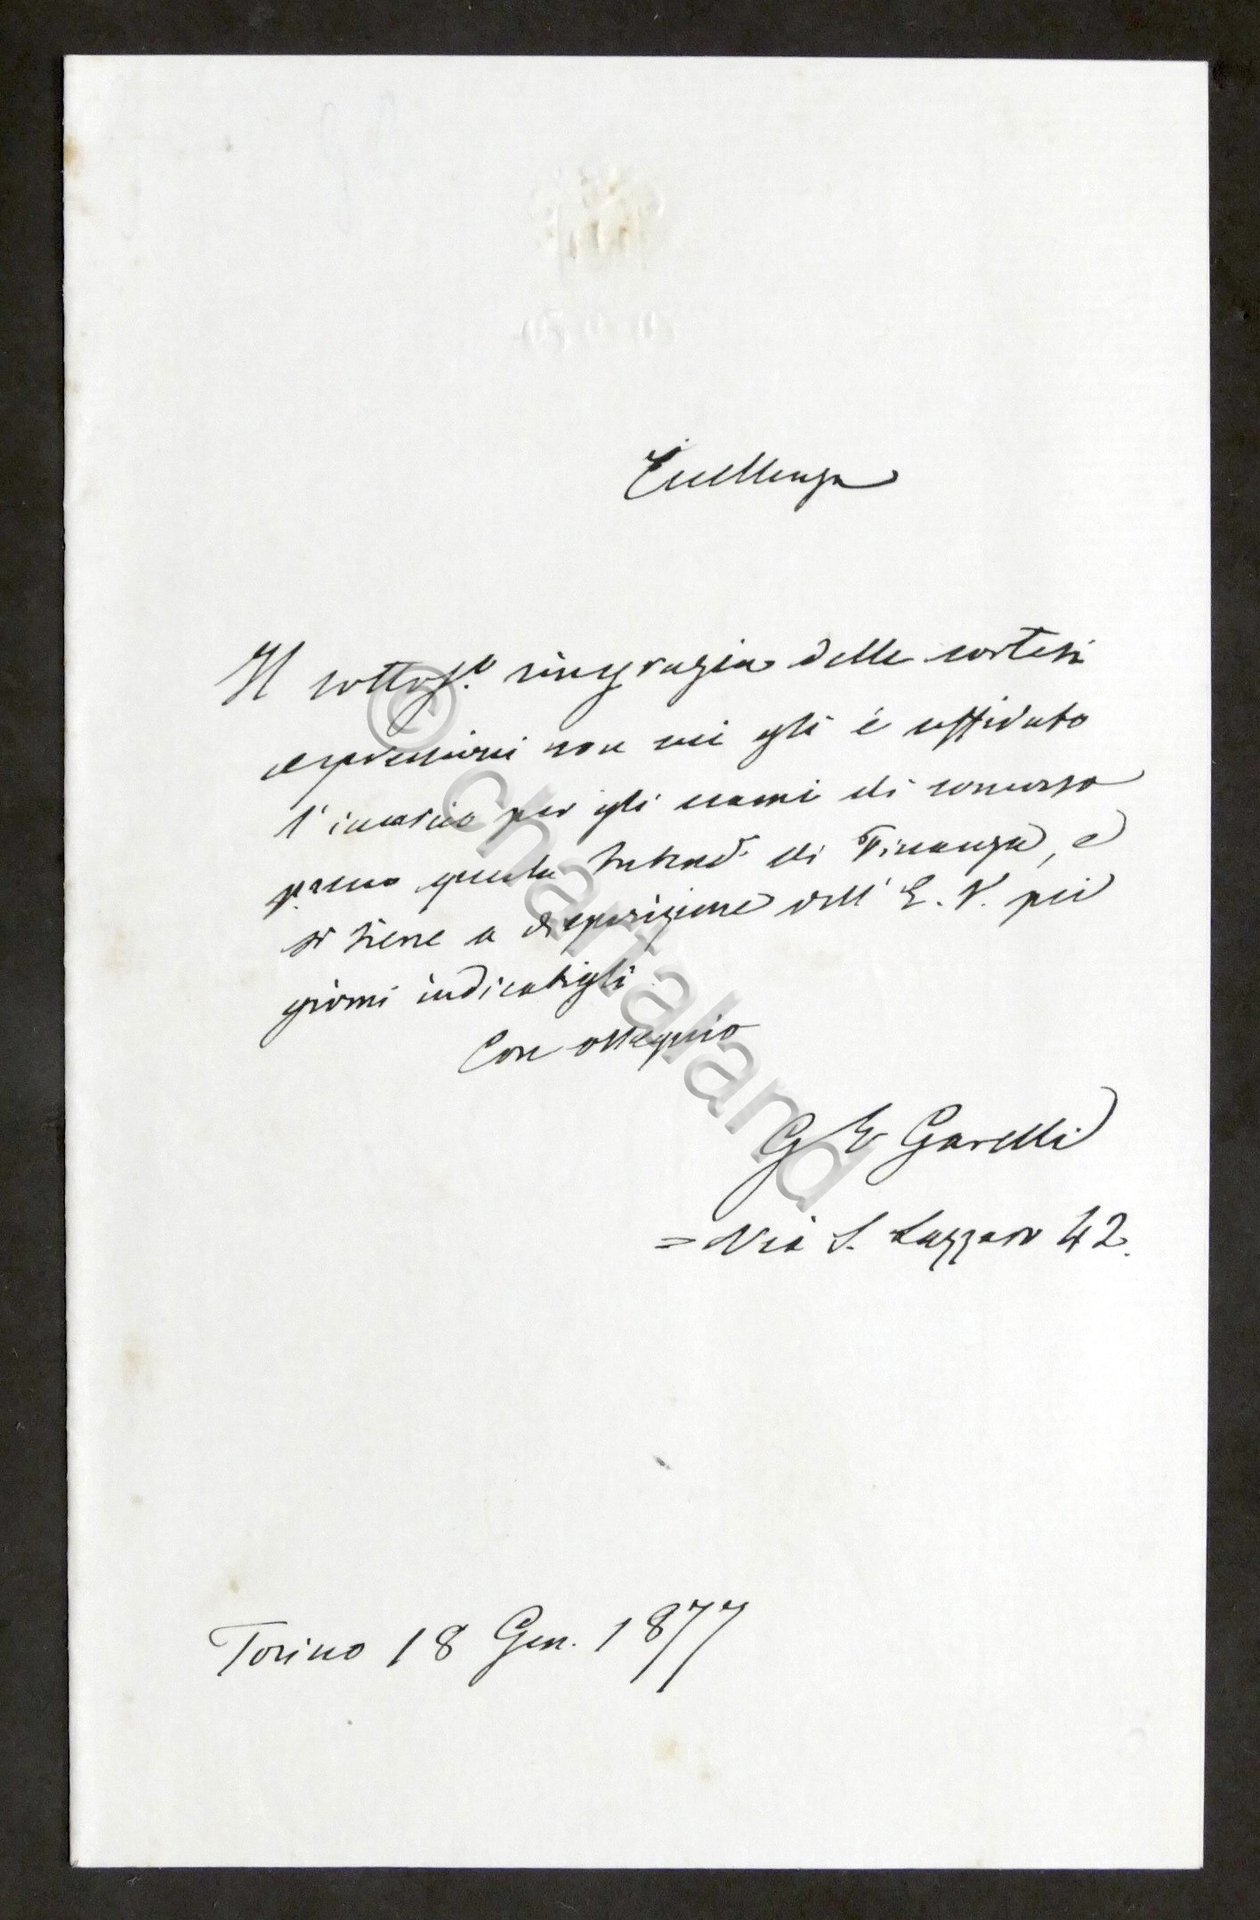 Eccellenza
Il sottos.to ringrazia delle cortesi
espressioni con cui gli è affidato
l'incarico per gli esami di concorso
presso questa Intend.a di Finanza, e
si tiene a disposizione dell' E. V. pei
giorni indicatigli.
Con ossequio
G E Garelli
= Via S. Lazzaro 42.
Torino 18 Gen. 1877
© chartaland